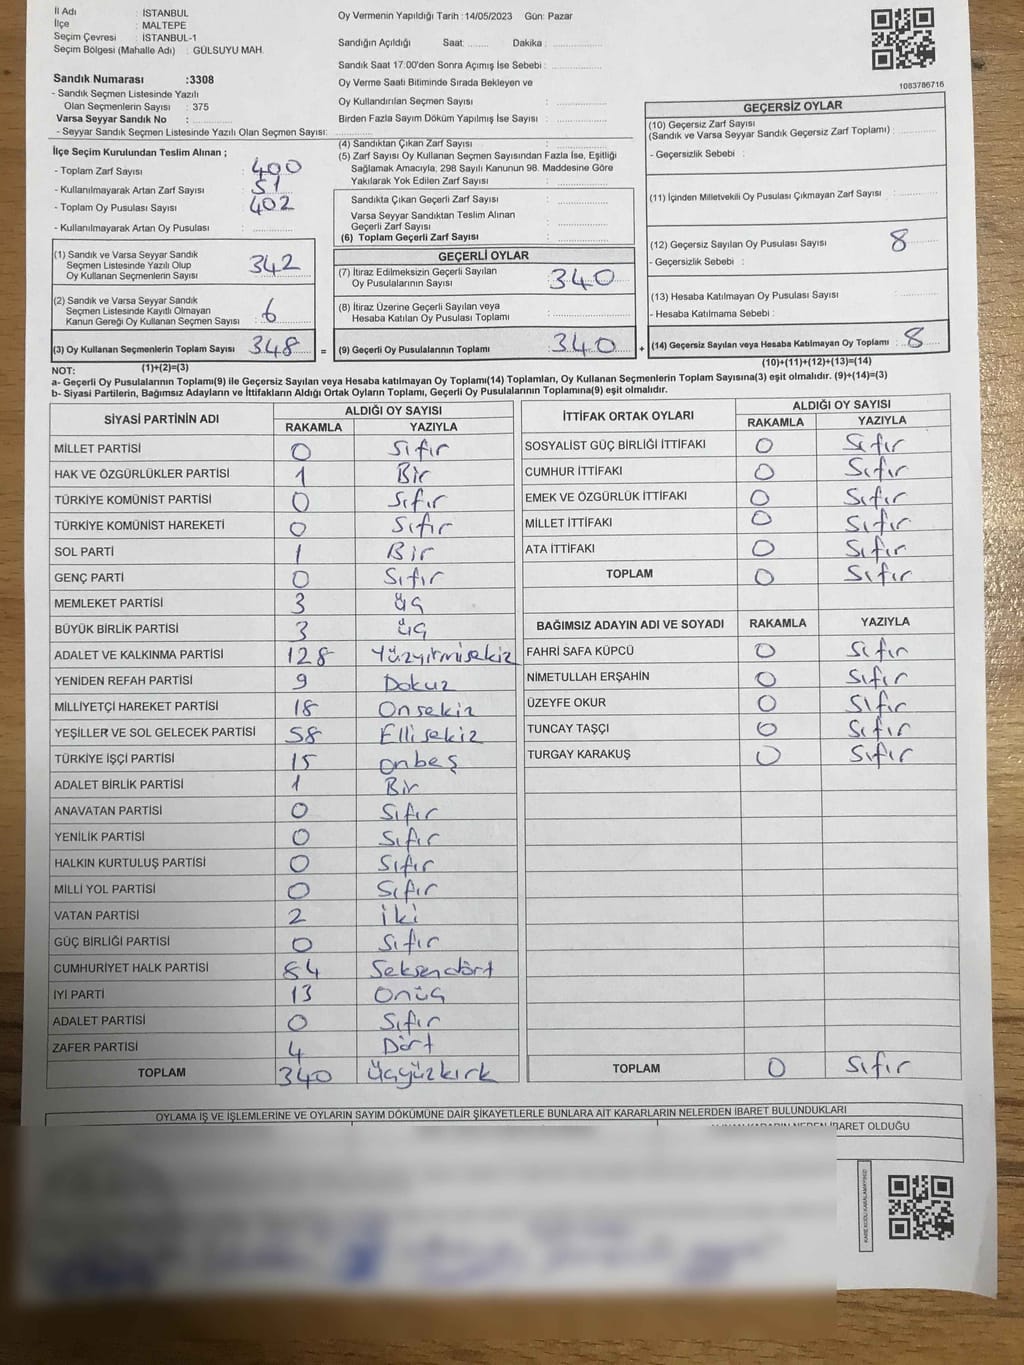 İl Adı : İSTANBUL
İlçe : MALTEPE
Seçim Çevresi : İSTANBUL-1
Seçim Bölgesi (Mahalle Adı) : GÜLSUYU MAH.
Sandık Numarası :3308
- Sandık Seçmen Listesinde Yazılı
Olan Seçmenlerin Sayısı : 375
Varsa Seyyar Sandık No :
- Seyyar Sandık Seçmen Listesinde Yazılı Olan Seçmen Sayısı:
İlçe Seçim Kurulundan Teslim Alınan ;
- Toplam Zarf Sayısı : 400
- Kullanılmayarak Artan Zarf Sayısı : 51
- Toplam Oy Pusulası Sayısı : 402
- Kullanılmayarak Artan Oy Pusulası :
(1) Sandık ve Varsa Seyyar Sandık
Seçmen Listesinde Yazılı Olup
Oy Kullanan Seçmenlerin Sayısı : 342
(2) Sandık ve Varsa Seyyar Sandık
Seçmen Listesinde Kayıtlı Olmayan
Kanun Gereği Oy Kullanan Seçmen Sayısı : 6
(3) Oy Kullanan Seçmenlerin Toplam Sayısı : 348
(1)+(2)=(3)
Oy Vermenin Yapıldığı Tarih : 14/05/2023 Gün: Pazar
Sandığın Açıldığı Saat: Dakika :
Sandık Saat 17:00'den Sonra Açımış İse Sebebi :
Oy Verme Saati Bitiminde Sırada Bekleyen ve
Oy Kullandırılan Seçmen Sayısı :
Birden Fazla Sayım Döküm Yapılmış İse Sayısı :
(4) Sandıktan Çıkan Zarf Sayısı :
(5) Zarf Sayısı Oy Kullanan Seçmen Sayısından Fazla İse, Eşitliği
Sağlamak Amacıyla, 298 Sayılı Kanunun 98. Maddesine Göre
Yakılarak Yok Edilen Zarf Sayısı :
Sandıkta Çıkan Geçerli Zarf Sayısı :
Varsa Seyyar Sandıktan Teslim Alınan
Geçerli Zarf Sayısı :
(6) Toplam Geçerli Zarf Sayısı :
GEÇERLİ OYLAR
(7) İtiraz Edilmeksizin Geçerli Sayılan
Oy Pusulalarının Sayısı : 340
(8) İtiraz Üzerine Geçerli Sayılan veya
Hesaba Katılan Oy Pusulası Toplamı :
= (9) Geçerli Oy Pusulalarının Toplamı : 340
1083786716
GEÇERSİZ OYLAR
(10) Geçersiz Zarf Sayısı
(Sandık ve Varsa Seyyar Sandık Geçersiz Zarf Toplamı) :
- Geçersizlik Sebebi :
(11) İçinden Milletvekili Oy Pusulası Çıkmayan Zarf Sayısı :
(12) Geçersiz Sayılan Oy Pusulası Sayısı : 8
- Geçersizlik Sebebi :
(13) Hesaba Katılmayan Oy Pusulası Sayısı :
- Hesaba Katılmama Sebebi :
+ (14) Geçersiz Sayılan veya Hesaba Katılmayan Oy Toplamı : 8
(10)+(11)+(12)+(13)=(14)
NOT:
a- Geçerli Oy Pusulalarının Toplamı(9) ile Geçersiz Sayılan veya Hesaba katılmayan Oy Toplamı(14) Toplamları, Oy Kullanan Seçmenlerin Toplam Sayısına(3) eşit olmalıdır. (9)+(14)=(3)
b- Siyasi Partilerin, Bağımsız Adayların ve İttifakların Aldığı Ortak Oyların Toplamı, Geçerli Oy Pusulalarının Toplamına(9) eşit olmalıdır.
SİYASİ PARTİNİN ADI ALDIĞI OY SAYISI
RAKAMLA YAZIYLA
MİLLET PARTİSİ 0 Sıfır
HAK VE ÖZGÜRLÜKLER PARTİSİ 1 Bir
TÜRKİYE KOMÜNİST PARTİSİ 0 Sıfır
TÜRKİYE KOMÜNİST HAREKETİ 0 Sıfır
SOL PARTİ 1 Bir
GENÇ PARTİ 0 Sıfır
MEMLEKET PARTİSİ 3 üç
BÜYÜK BİRLİK PARTİSİ 3 üç
ADALET VE KALKINMA PARTİSİ 128 Yüzyirmisekiz
YENİDEN REFAH PARTİSİ 9 Dokuz
MİLLİYETÇİ HAREKET PARTİSİ 18 Onsekiz
YEŞİLLER VE SOL GELECEK PARTİSİ 58 Ellisekiz
TÜRKİYE İŞÇİ PARTİSİ 15 onbeş
ADALET BİRLİK PARTİSİ 1 Bir
ANAVATAN PARTİSİ 0 Sıfır
YENİLİK PARTİSİ 0 Sıfır
HALKIN KURTULUŞ PARTİSİ 0 Sıfır
MİLLİ YOL PARTİSİ 0 Sıfır
VATAN PARTİSİ 2 iki
GÜÇ BİRLİĞİ PARTİSİ 0 Sıfır
CUMHURİYET HALK PARTİSİ 84 Seksendört
İYİ PARTİ 13 Onüç
ADALET PARTİSİ 0 Sıfır
ZAFER PARTİSİ 4 Dört
TOPLAM 340 üçyüzkırk
İTTİFAK ORTAK OYLARI ALDIĞI OY SAYISI
RAKAMLA YAZIYLA
SOSYALİST GÜÇ BİRLİĞİ İTTİFAKI 0 Sıfır
CUMHUR İTTİFAKI 0 Sıfır
EMEK VE ÖZGÜRLÜK İTTİFAKI 0 Sıfır
MİLLET İTTİFAKI 0 Sıfır
ATA İTTİFAKI 0 Sıfır
TOPLAM 0 Sıfır
BAĞIMSIZ ADAYIN ADI VE SOYADI RAKAMLA YAZIYLA
FAHRİ SAFA KÜPCÜ 0 Sıfır
NİMETULLAH ERŞAHİN 0 Sıfır
ÜZEYFE OKUR 0 Sıfır
TUNCAY TAŞÇI 0 Sıfır
TURGAY KARAKUŞ 0 Sıfır
TOPLAM 0 Sıfır
OYLAMA İŞ VE İŞLEMLERİNE VE OYLARIN SAYIM DÖKÜMÜNE DAİR ŞİKAYETLERLE BUNLARA AİT KARARLARIN NELERDEN İBARET BULUNDUKLARI
NEDEN İBARET OLDUĞU
KAREKODU KARALAMAYINIZ!